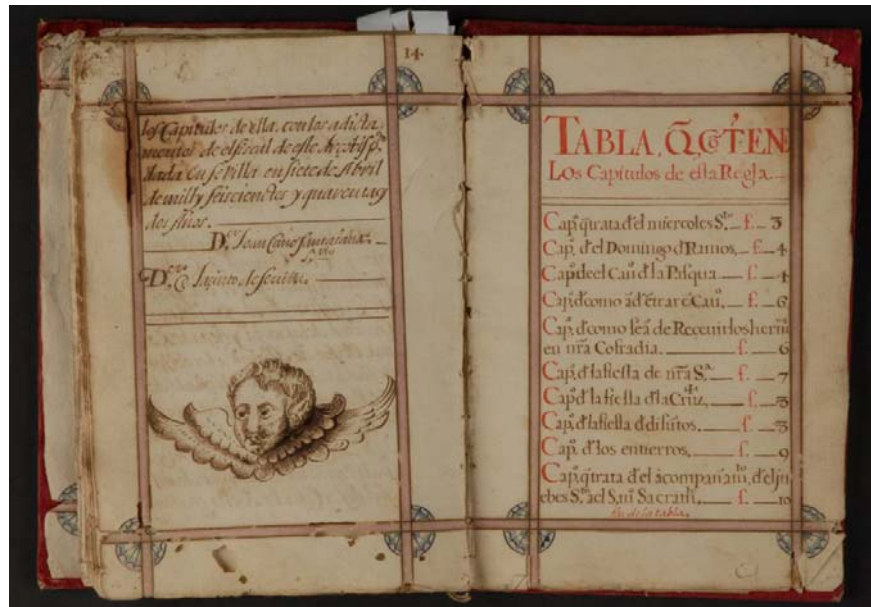 14
los Capitulos de ella, con los adicta
mentos de el fiscal de este Arçobispº.
dada en sevilla en siete de Abril
de mill y seiscientos y quarenta y
dos Años.
Dor. Joan
Dor. Jaçinto de sevilla
TABLA, Q̃, CÕTIENE
Los Capitulos de esta Regla.
Capº. q̃ trata d'el miercoles Sto. f. 3
Capº. d'el Domingo d Ramos, f. 4
Capº. de el Cauº. d la Pasqua f. 4
Capº. d como ã d' ẽtrar ẽ Cauº. f. 6
Capº. d como seã de Receuir los herm
en nr̃a Cofradia. f. 6
Capº. d la fiesta de nr̃a Sa. f. 7
Capº. d la fiesta d la Cruz, f. 8
Capº. d la fiesta d difũtos. f. 8
Capº. d los entierros, f. 9
Capº. q̃ trata d'el acompañamto. d'el ju
ebes Sto. ael S. m Sacram. f. 10
fin de la tabla.